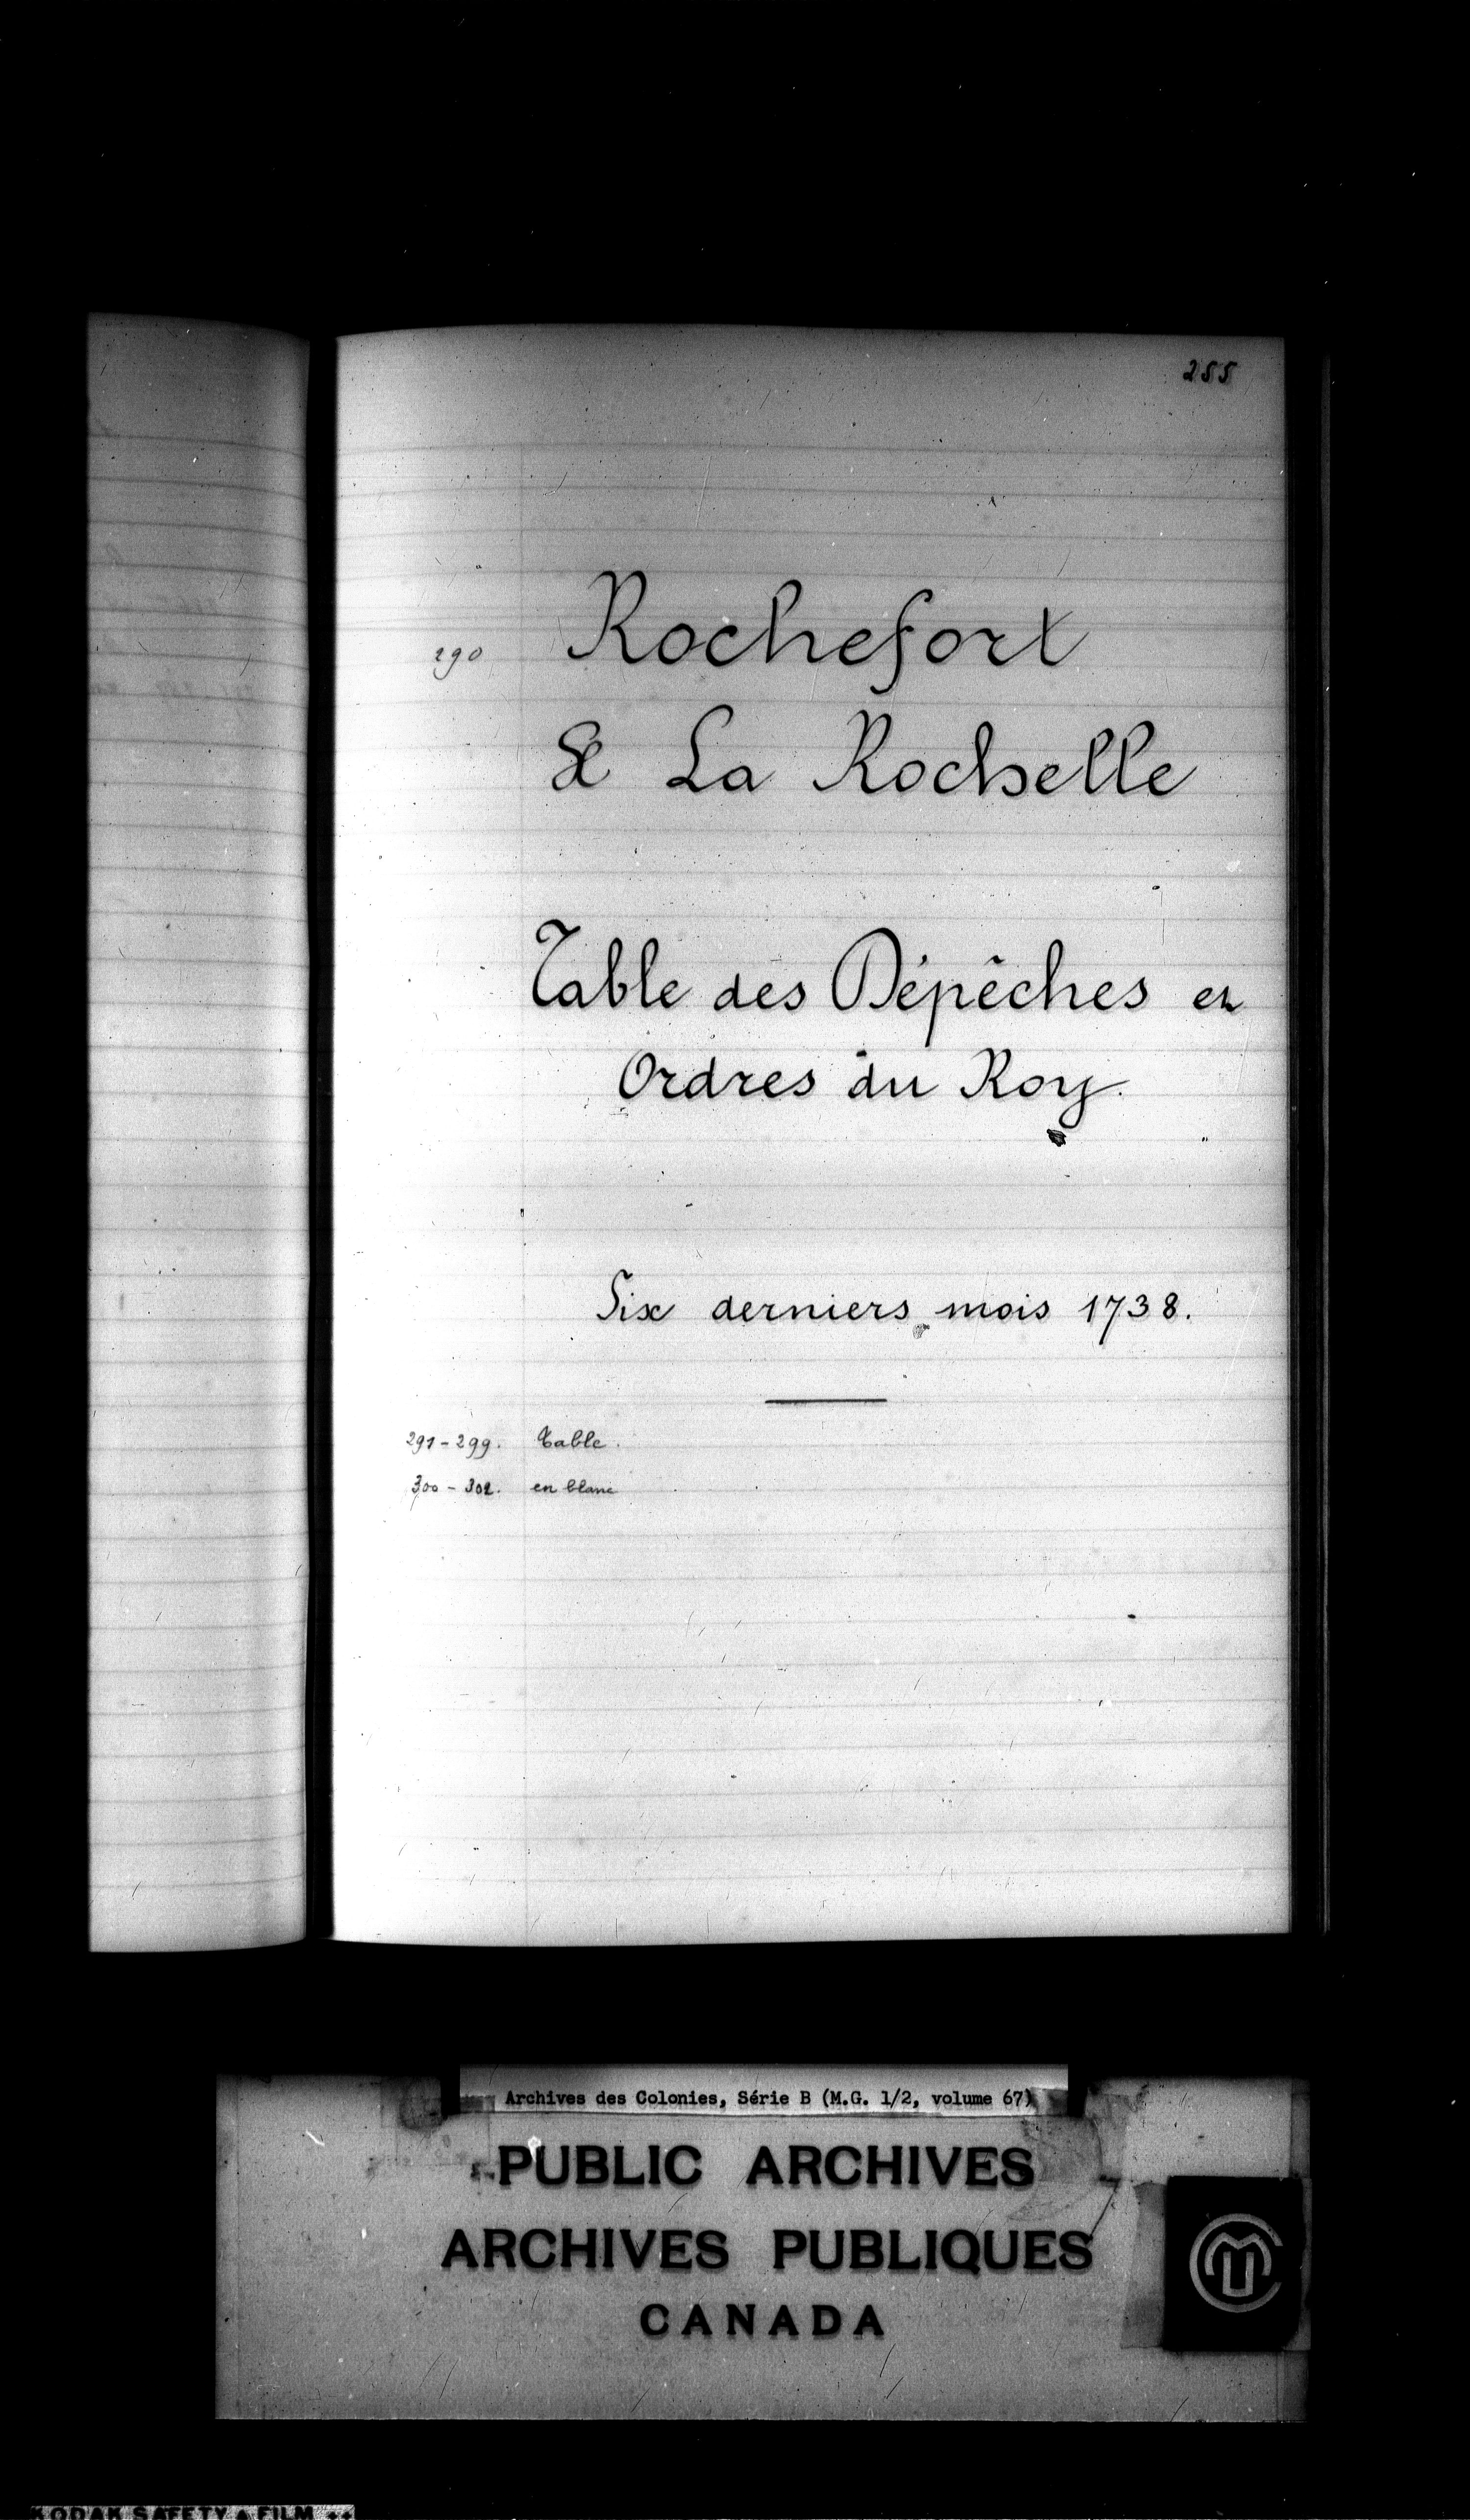 255
290 Rochefort
& La Rochelle
Table des Dépêches et
Ordres du Roy.
Six derniers mois 1738.
291-299. Table.
300-302. en blanc
Archives des Colonies, Série B (M.G. 1/2, volume 67)
PUBLIC ARCHIVES
ARCHIVES PUBLIQUES
CANADA
KODAK SAFETY FILM